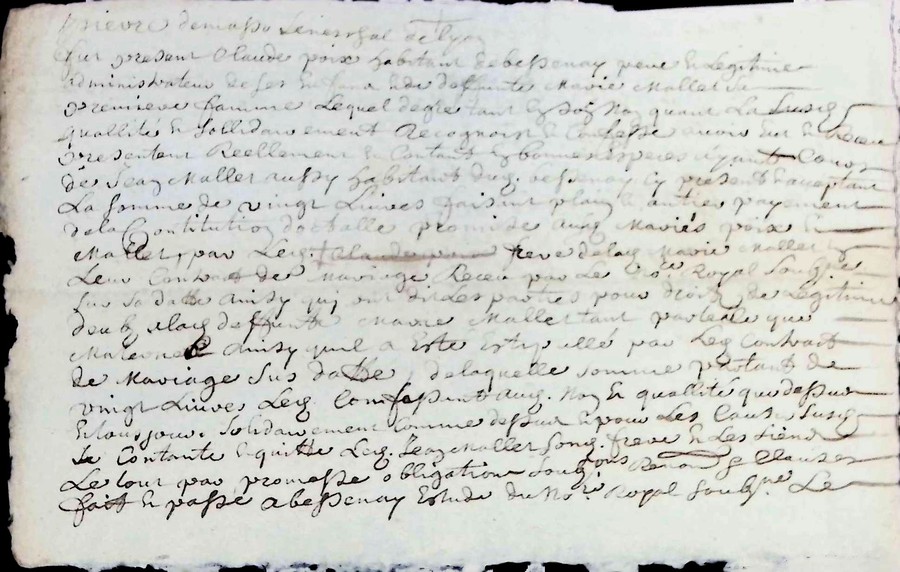 demasso seneschal de Lyon
fut present Claude poix habitant de bessenay pere & legitime
administrateur de ses enfans & de deffuncte Marie Mallet sa
premiere famme Lequel de gre tant en son Nom quant La susd
quallité & sollidairement Recognoist & Confesse avoir eu & Receu
presentem Reellement & Contant en bonnes especes ayant Cours
de Jean Mallet aussy habitant dud bessenay cy present & acceptant
La somme de vingt Livres faisant plain & antier payement
de la Constitution dottalle promise ausd Mariés poix &
Mallet, par Led frere de lad Marie Mallet
Leur Contract de Mariage Receu par Le No.re Royal soubs.ne
sus sa datte ainsy quj ont dit Les parties pour droit de Legitime
deub a lad deffuncte Marie Mallet tant paternle que
Maternele ainsy quil a este estipullé par Led Contract
de Mariage sus datte, de laquelle somme partant de
vingt Livres Led Confessant aud Nom & quallité que dessus
& tousjours solidairement comme dessus & pour Les Causes susd
se Contante & quitte Led Jean Mallet sond frere & Les siens
Le tout par promesse obligation soubz.ons Renon.s & Clauses
fait & passé a bessenay Estude du No.re Royal soubs.ne Le